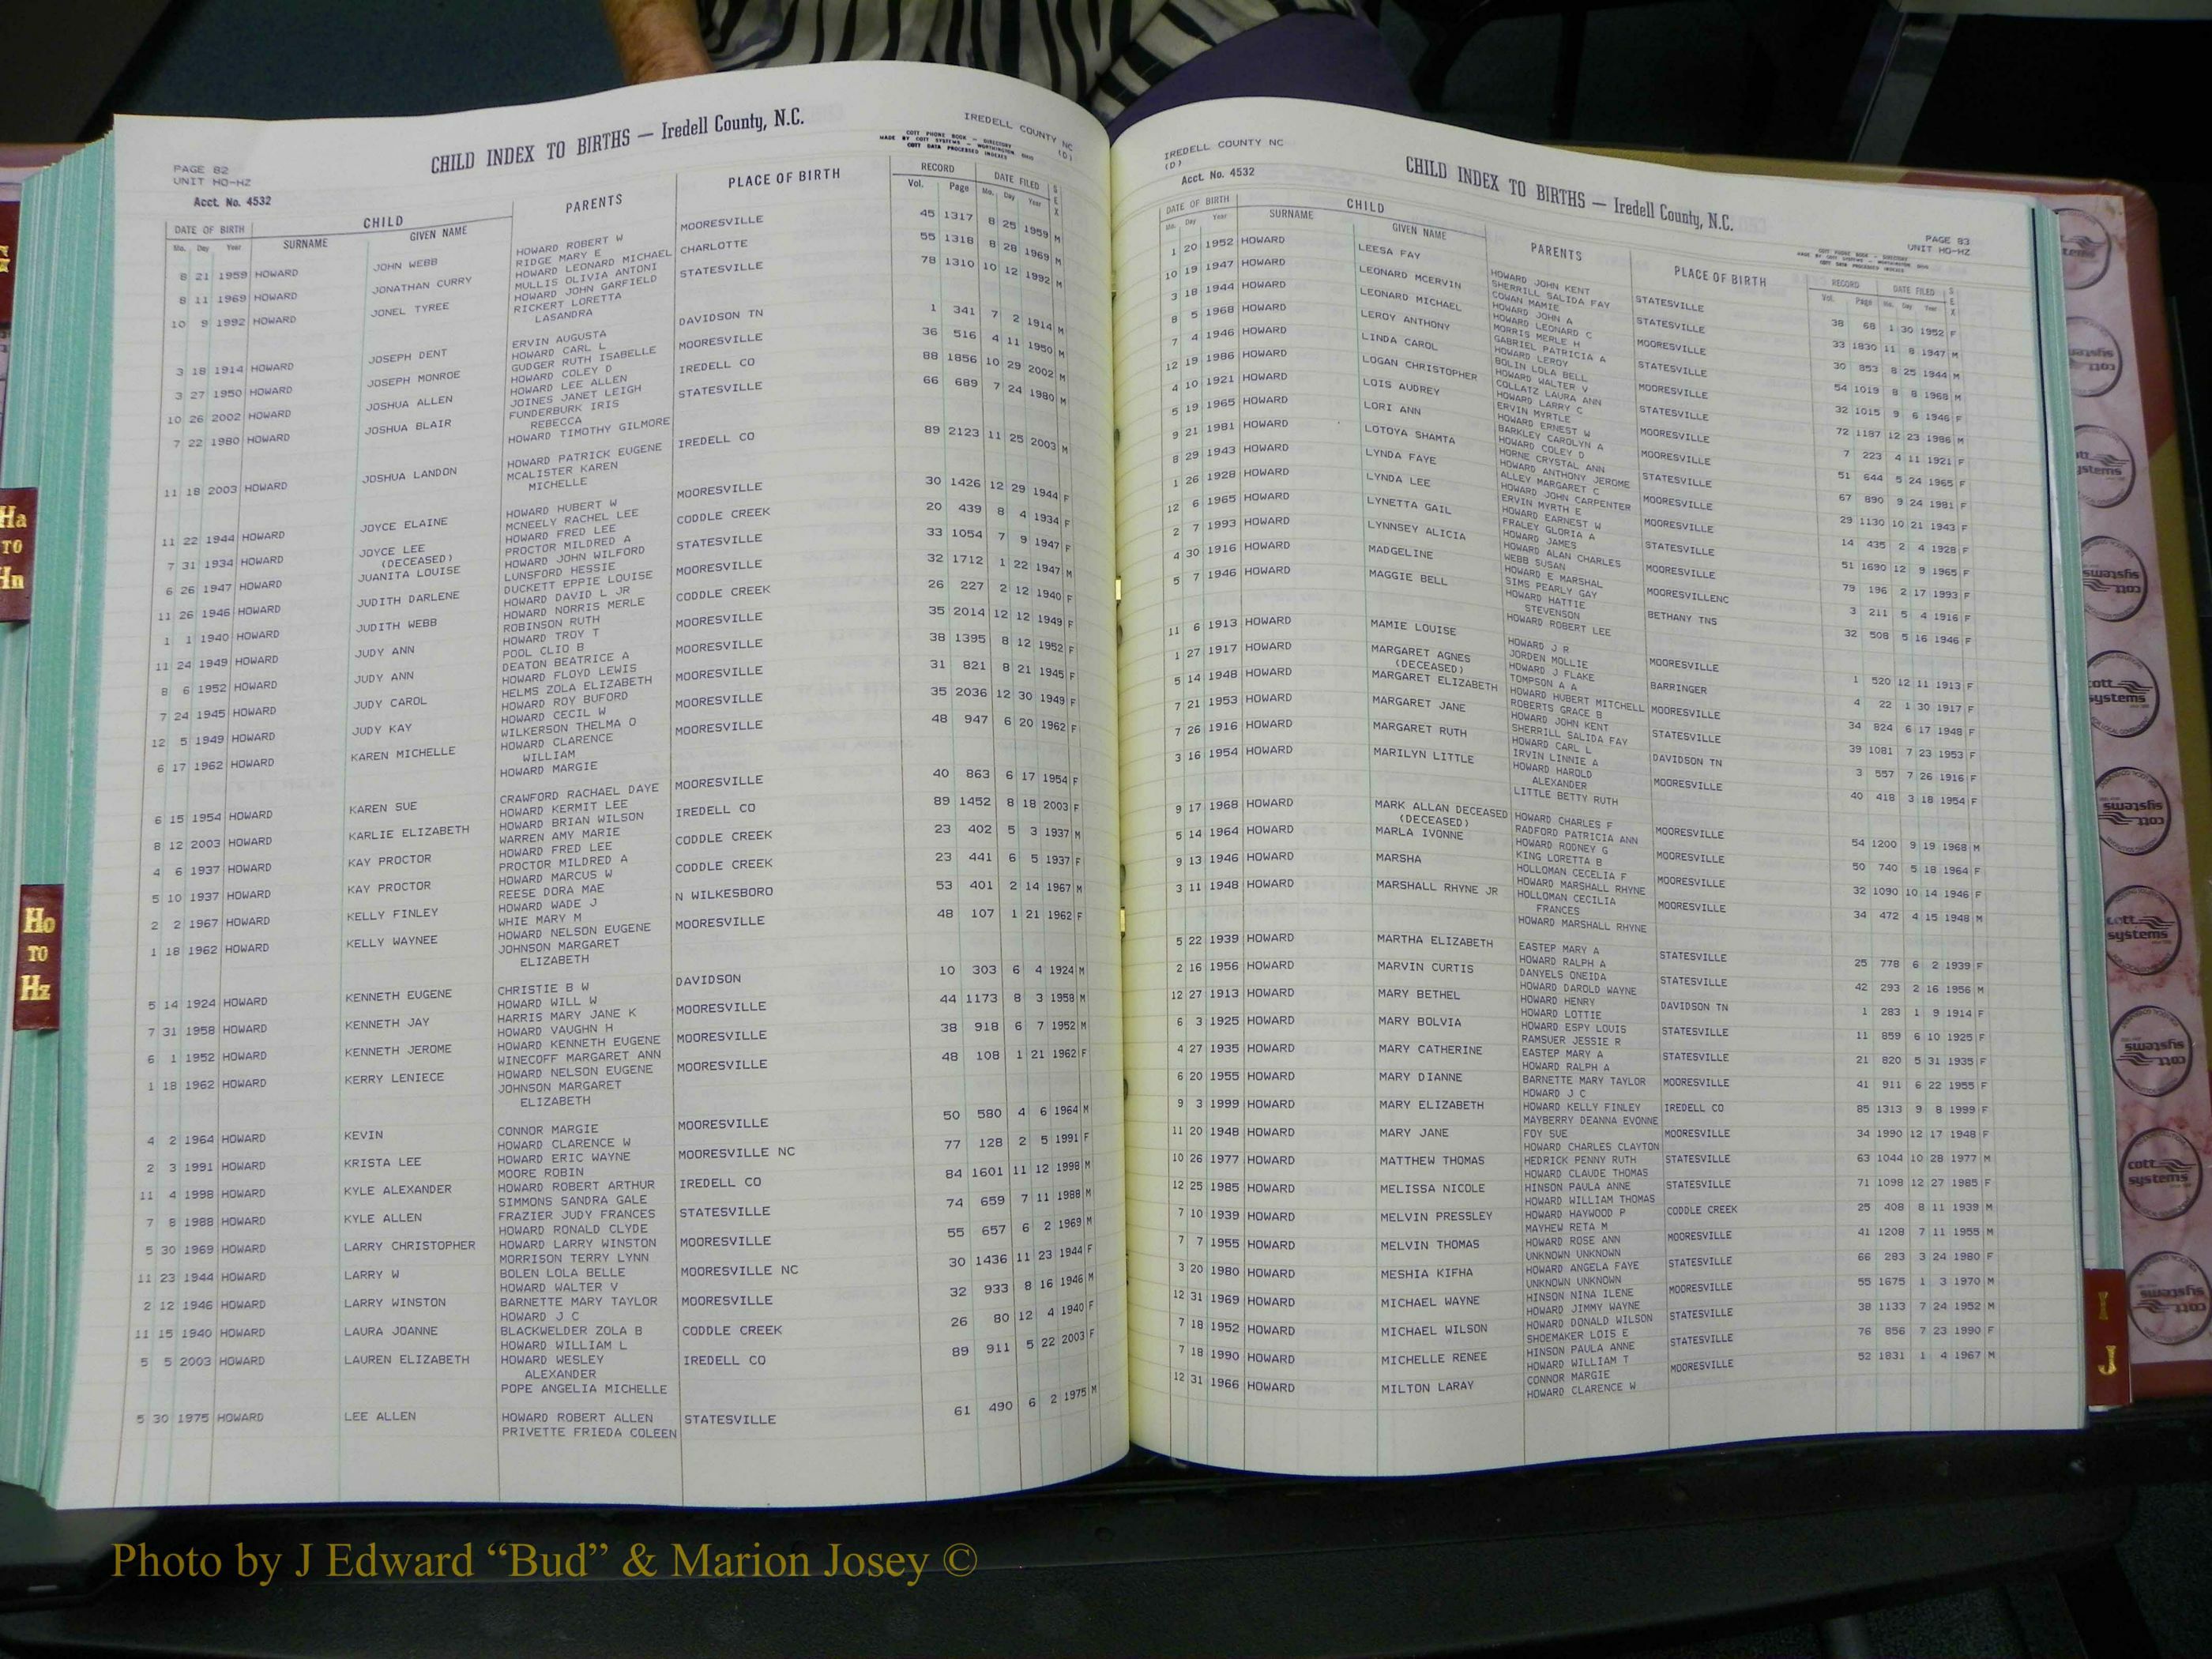 CHILD INDEX TO BIRTHS — Iredell County, N.C.
IREDELL COUNTY NC
(D)
PAGE 82
UNIT HO-HZ
Acct. No. 4532
COTT PHONE BOOK — DIRECTORY
MADE BY COTT SYSTEMS — WORTHINGTON OHIO
COTT DATA PROCESSED INDEXES
DATE OF BIRTH CHILD PARENTS PLACE OF BIRTH RECORD DATE FILED SEX
Mo. Day Year SURNAME GIVEN NAME Vol. Page Mo. Day Year
8 21 1959 HOWARD JOHN WEBB HOWARD ROBERT W MOORESVILLE 45 1317 8 25 1959 M
RIDGE MARY E
8 11 1969 HOWARD JONATHAN CURRY HOWARD LEONARD MICHAEL CHARLOTTE 55 1318 8 28 1969 M
MULLIS OLIVIA ANTONI
10 9 1992 HOWARD JONEL TYREE HOWARD JOHN GARFIELD STATESVILLE 78 1310 10 12 1992 M
RICKERT LORETTA
LASANDRA
3 18 1914 HOWARD JOSEPH DENT ERVIN AUGUSTA DAVIDSON TN 1 341 7 2 1914 M
HOWARD CARL L
3 27 1950 HOWARD JOSEPH MONROE GUDGER RUTH ISABELLE MOORESVILLE 36 516 4 11 1950 M
HOWARD COLEY D
10 26 2002 HOWARD JOSHUA ALLEN HOWARD LEE ALLEN IREDELL CO 88 1856 10 29 2002 M
JOINES JANET LEIGH
7 22 1980 HOWARD JOSHUA BLAIR FUNDERBURK IRIS STATESVILLE 66 689 7 24 1980 M
REBECCA
HOWARD TIMOTHY GILMORE
11 18 2003 HOWARD JOSHUA LANDON HOWARD PATRICK EUGENE IREDELL CO 89 2123 11 25 2003 M
MCALISTER KAREN
MICHELLE
11 22 1944 HOWARD JOYCE ELAINE HOWARD HUBERT W MOORESVILLE 30 1426 12 29 1944 F
MCNEELY RACHEL LEE
7 31 1934 HOWARD JOYCE LEE HOWARD FRED LEE CODDLE CREEK 20 439 8 4 1934 F
(DECEASED) PROCTOR MILDRED A
6 26 1947 HOWARD JUANITA LOUISE HOWARD JOHN WILFORD STATESVILLE 33 1054 7 9 1947 F
LUNSFORD HESSIE
11 26 1946 HOWARD JUDITH DARLENE DUCKETT EPPIE LOUISE MOORESVILLE 32 1712 1 22 1947 M
HOWARD DAVID L JR
1 1 1940 HOWARD JUDITH WEBB HOWARD NORRIS MERLE CODDLE CREEK 26 227 2 12 1940 F
ROBINSON RUTH
11 24 1949 HOWARD JUDY ANN HOWARD TROY T MOORESVILLE 35 2014 12 12 1949 F
POOL CLIO B
8 6 1952 HOWARD JUDY ANN DEATON BEATRICE A MOORESVILLE 38 1395 8 12 1952 F
HOWARD FLOYD LEWIS
7 24 1945 HOWARD JUDY CAROL HELMS ZOLA ELIZABETH MOORESVILLE 31 821 8 21 1945 F
HOWARD ROY BUFORD
12 5 1949 HOWARD JUDY KAY HOWARD CECIL W MOORESVILLE 35 2036 12 30 1949 F
WILKERSON THELMA O
6 17 1962 HOWARD KAREN MICHELLE HOWARD CLARENCE MOORESVILLE 48 947 6 20 1962 F
WILLIAM
HOWARD MARGIE
6 15 1954 HOWARD KAREN SUE CRAWFORD RACHAEL DAYE MOORESVILLE 40 863 6 17 1954 F
HOWARD KERMIT LEE
8 12 2003 HOWARD KARLIE ELIZABETH HOWARD BRIAN WILSON IREDELL CO 89 1452 8 18 2003 F
WARREN AMY MARIE
4 6 1937 HOWARD KAY PROCTOR HOWARD FRED LEE CODDLE CREEK 23 402 5 3 1937 M
PROCTOR MILDRED A
5 10 1937 HOWARD KAY PROCTOR HOWARD MARCUS W CODDLE CREEK 23 441 6 5 1937 F
REESE DORA MAE
2 2 1967 HOWARD KELLY FINLEY HOWARD WADE J N WILKESBORO 53 401 2 14 1967 M
WHIE MARY M
1 18 1962 HOWARD KELLY WAYNEE HOWARD NELSON EUGENE MOORESVILLE 48 107 1 21 1962 F
JOHNSON MARGARET
ELIZABETH
5 14 1924 HOWARD KENNETH EUGENE CHRISTIE B W DAVIDSON 10 303 6 4 1924 M
HOWARD WILL W
7 31 1958 HOWARD KENNETH JAY HARRIS MARY JANE K MOORESVILLE 44 1173 8 3 1958 M
HOWARD VAUGHN H
6 1 1952 HOWARD KENNETH JEROME HOWARD KENNETH EUGENE MOORESVILLE 38 918 6 7 1952 M
WINECOFF MARGARET ANN
1 18 1962 HOWARD KERRY LENIECE HOWARD NELSON EUGENE MOORESVILLE 48 108 1 21 1962 F
JOHNSON MARGARET
ELIZABETH
4 2 1964 HOWARD KEVIN CONNOR MARGIE MOORESVILLE 50 580 4 6 1964 M
HOWARD CLARENCE W
2 3 1991 HOWARD KRISTA LEE HOWARD ERIC WAYNE MOORESVILLE NC 77 128 2 5 1991 F
MOORE ROBIN
11 4 1998 HOWARD KYLE ALEXANDER HOWARD ROBERT ARTHUR IREDELL CO 84 1601 11 12 1998 M
SIMMONS SANDRA GALE
7 8 1988 HOWARD KYLE ALLEN FRAZIER JUDY FRANCES STATESVILLE 74 659 7 11 1988 M
HOWARD RONALD CLYDE
5 30 1969 HOWARD LARRY CHRISTOPHER HOWARD LARRY WINSTON MOORESVILLE 55 657 6 2 1969 M
MORRISON TERRY LYNN
11 23 1944 HOWARD LARRY W BOLEN LOLA BELLE MOORESVILLE NC 30 1436 11 23 1944 F
HOWARD WALTER V
2 12 1946 HOWARD LARRY WINSTON BARNETTE MARY TAYLOR MOORESVILLE 32 933 8 16 1946 M
HOWARD J C
11 15 1940 HOWARD LAURA JOANNE BLACKWELDER ZOLA B CODDLE CREEK 26 80 12 4 1940 F
HOWARD WILLIAM L
5 5 2003 HOWARD LAUREN ELIZABETH HOWARD WESLEY IREDELL CO 89 911 5 22 2003 F
ALEXANDER
POPE ANGELIA MICHELLE
5 30 1975 HOWARD LEE ALLEN HOWARD ROBERT ALLEN STATESVILLE 61 490 6 2 1975 M
PRIVETTE FRIEDA COLEEN
IREDELL COUNTY NC
(D)
Acct. No. 4532
CHILD INDEX TO BIRTHS — Iredell County, N.C.
PAGE 83
UNIT HO-HZ
COTT PHONE BOOK — DIRECTORY
MADE BY COTT SYSTEMS — WORTHINGTON OHIO
COTT DATA PROCESSED INDEXES
DATE OF BIRTH CHILD PARENTS PLACE OF BIRTH RECORD DATE FILED SEX
Mo. Day Year SURNAME GIVEN NAME Vol. Page Mo. Day Year
1 20 1952 HOWARD LEESA FAY HOWARD JOHN KENT STATESVILLE 38 68 1 30 1952 F
SHERRILL SALIDA FAY
10 19 1947 HOWARD LEONARD MCERVIN COWAN MAMIE STATESVILLE 33 1830 11 8 1947 M
HOWARD JOHN A
3 18 1944 HOWARD LEONARD MICHAEL HOWARD LEONARD C MOORESVILLE 30 853 8 25 1944 M
MORRIS MERLE H
8 5 1968 HOWARD LEROY ANTHONY GABRIEL PATRICIA A STATESVILLE 54 1019 8 8 1968 M
HOWARD LEROY
7 4 1946 HOWARD LINDA CAROL BOLIN LOLA BELL MOORESVILLE 32 1015 9 6 1946 F
HOWARD WALTER V
12 19 1986 HOWARD LOGAN CHRISTOPHER COLLATZ LAURA ANN STATESVILLE 72 1187 12 23 1986 M
HOWARD LARRY C
4 10 1921 HOWARD LOIS AUDREY ERVIN MYRTLE MOORESVILLE 7 223 4 11 1921 F
HOWARD ERNEST W
5 19 1965 HOWARD LORI ANN BARKLEY CAROLYN A MOORESVILLE 51 644 5 24 1965 F
HOWARD COLEY D
9 21 1981 HOWARD LOTOYA SHAMTA HORNE CRYSTAL ANN STATESVILLE 67 890 9 24 1981 F
HOWARD ANTHONY JEROME
8 29 1943 HOWARD LYNDA FAYE ALLEY MARGARET C MOORESVILLE 29 1130 10 21 1943 F
HOWARD JOHN CARPENTER
1 26 1928 HOWARD LYNDA LEE ERVIN MYRTH E MOORESVILLE 14 435 2 4 1928 F
HOWARD EARNEST W
12 6 1965 HOWARD LYNETTA GAIL FRALEY GLORIA A STATESVILLE 51 1690 12 9 1965 F
HOWARD JAMES
2 7 1993 HOWARD LYNNSEY ALICIA HOWARD ALAN CHARLES MOORESVILLENC 79 196 2 17 1993 F
WEBB SUSAN
4 30 1916 HOWARD MADGELINE HOWARD E MARSHAL BETHANY TNS 3 211 5 4 1916 F
SIMS PEARLY GAY
5 7 1946 HOWARD MAGGIE BELL HOWARD HATTIE 32 508 5 16 1946 F
STEVENSON
HOWARD ROBERT LEE
11 6 1913 HOWARD MAMIE LOUISE HOWARD J R MOORESVILLE 1 520 12 11 1913 F
JORDEN MOLLIE
1 27 1917 HOWARD MARGARET AGNES HOWARD J FLAKE BARRINGER 4 22 1 30 1917 F
(DECEASED) TOMPSON A A
5 14 1948 HOWARD MARGARET ELIZABETH HOWARD HUBERT MITCHELL MOORESVILLE 34 824 6 17 1948 F
ROBERTS GRACE B
7 21 1953 HOWARD MARGARET JANE HOWARD JOHN KENT STATESVILLE 39 1081 7 23 1953 F
SHERRILL SALIDA FAY
7 26 1916 HOWARD MARGARET RUTH HOWARD CARL L DAVIDSON TN 3 557 7 26 1916 F
IRVIN LINNIE A
3 16 1954 HOWARD MARILYN LITTLE HOWARD HAROLD MOORESVILLE 40 418 3 18 1954 F
ALEXANDER
LITTLE BETTY RUTH
9 17 1968 HOWARD MARK ALLAN DECEASED HOWARD CHARLES F MOORESVILLE 54 1200 9 19 1968 M
(DECEASED) RADFORD PATRICIA ANN
5 14 1964 HOWARD MARLA IVONNE HOWARD RODNEY G MOORESVILLE 50 740 5 18 1964 F
KING LORETTA B
9 13 1946 HOWARD MARSHA HOLLOMAN CECELIA F MOORESVILLE 32 1090 10 14 1946 F
HOWARD MARSHALL RHYNE
3 11 1948 HOWARD MARSHALL RHYNE JR HOLLOMAN CECILIA MOORESVILLE 34 472 4 15 1948 M
FRANCES
HOWARD MARSHALL RHYNE
5 22 1939 HOWARD MARTHA ELIZABETH EASTEP MARY A STATESVILLE 25 778 6 2 1939 F
HOWARD RALPH A
2 16 1956 HOWARD MARVIN CURTIS DANYELS ONEIDA STATESVILLE 42 293 2 16 1956 M
HOWARD DAROLD WAYNE
12 27 1913 HOWARD MARY BETHEL HOWARD HENRY DAVIDSON TN 1 283 1 9 1914 F
HOWARD LOTTIE
6 3 1925 HOWARD MARY BOLVIA HOWARD ESPY LOUIS STATESVILLE 11 859 6 10 1925 F
RAMSUER JESSIE R
4 27 1935 HOWARD MARY CATHERINE EASTEP MARY A STATESVILLE 21 820 5 31 1935 F
HOWARD RALPH A
6 20 1955 HOWARD MARY DIANNE BARNETTE MARY TAYLOR MOORESVILLE 41 911 6 22 1955 F
HOWARD J C
9 3 1999 HOWARD MARY ELIZABETH HOWARD KELLY FINLEY IREDELL CO 85 1313 9 8 1999 F
MAYBERRY DEANNA EVONNE
11 20 1948 HOWARD MARY JANE FOY SUE MOORESVILLE 34 1990 12 17 1948 F
HOWARD CHARLES CLAYTON
10 26 1977 HOWARD MATTHEW THOMAS HEDRICK PENNY RUTH STATESVILLE 63 1044 10 28 1977 M
HOWARD CLAUDE THOMAS
12 25 1985 HOWARD MELISSA NICOLE HINSON PAULA ANNE STATESVILLE 71 1098 12 27 1985 F
HOWARD WILLIAM THOMAS
7 10 1939 HOWARD MELVIN PRESSLEY HOWARD HAYWOOD P CODDLE CREEK 25 408 8 11 1939 M
MAYHEW RETA M
7 7 1955 HOWARD MELVIN THOMAS HOWARD ROSE ANN MOORESVILLE 41 1208 7 11 1955 M
UNKNOWN UNKNOWN
3 20 1980 HOWARD MESHIA KIFHA HOWARD ANGELA FAYE STATESVILLE 66 283 3 24 1980 F
UNKNOWN UNKNOWN
12 31 1969 HOWARD MICHAEL WAYNE HINSON NINA ILENE MOORESVILLE 55 1675 1 3 1970 M
HOWARD JIMMY WAYNE
7 18 1952 HOWARD MICHAEL WILSON HOWARD DONALD WILSON STATESVILLE 38 1133 7 24 1952 M
SHOEMAKER LOIS E
7 18 1990 HOWARD MICHELLE RENEE HINSON PAULA ANNE STATESVILLE 76 856 7 23 1990 F
HOWARD WILLIAM T
12 31 1966 HOWARD MILTON LARAY CONNOR MARGIE MOORESVILLE 52 1831 1 4 1967 M
HOWARD CLARENCE W
Ha
TO
Hn
Ho
TO
Hz
I
J
cott systems
Photo by J Edward “Bud” & Marion Josey ©